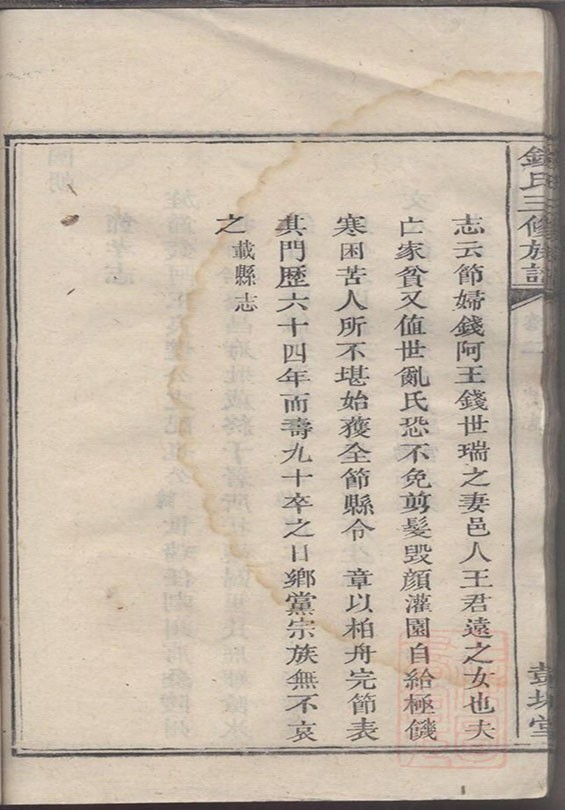 錢氏三修族譜
彭城堂
志云節婦錢阿王錢世瑞之妻邑人王君遠之女也夫
亡家貧又值世亂氏恐不免剪髮毀顏灌園自給極饑
寒困苦人所不堪始獲全節縣令 章以柏舟完節表
其門歷六十四年而壽九十卒之日鄉黨宗族無不哀
之 載縣志